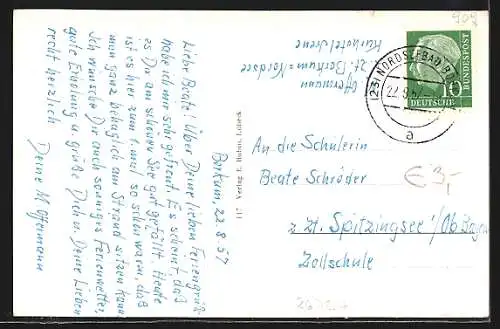 Borkum, 23.8.57
Liebe Beate! Über Deine lieben Feriengrüße
habe ich mich sehr gefreut. Es scheint, daß
es Dir am schönen See gut gefällt. Heute
ist es hier zum 1. mal so schön warm, daß
man ganz behaglich am Strand sitzen kann.
Ich wünsche Dir auch sonniges Ferienwetter,
gute Erholung u. grüße Dich u. Deine Lieben
recht herzlich
Deine M. Offermann
117 Verlag E. Hubon, Lübeck
Offermann
z. Zt. Borkum = Nordsee
Kurhotel
(23) NORDSEEBAD
22.9.57
a
10
DEUTSCHE
BUNDESPOST
An die Schülerin
Beate Schröder
z. Zt. Spitzingsee/Ob. Bayern
Zollschule
€ 3,-